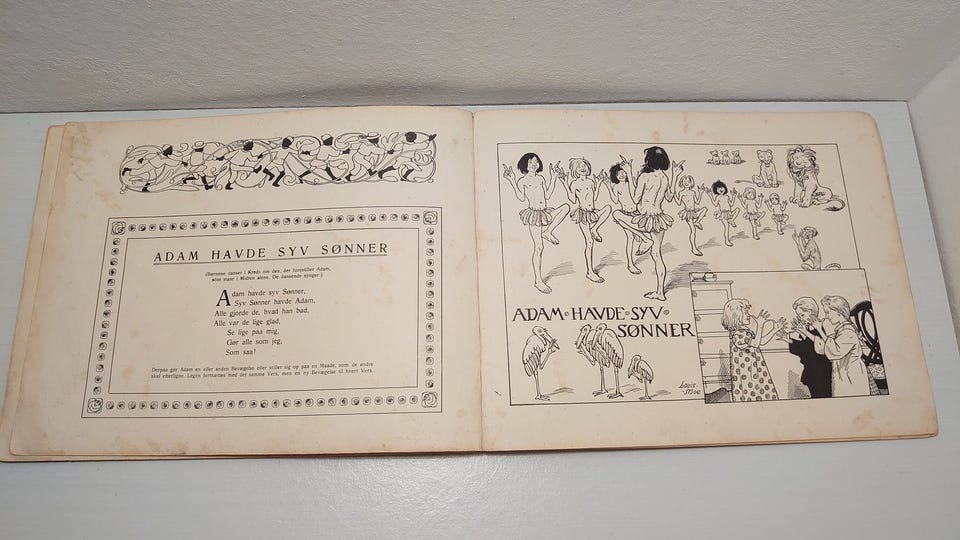 ADAM HAVDE SYV SØNNER
(Børnene danser i Kreds om den, der forestiller Adam,
som staar i Midten alene. De dansende synger:)
Adam havde syv Sønner,
Syv Sønner havde Adam,
Alle gjorde de, hvad han bad,
Alle var de lige glad,
Se lige paa mig,
Gør alle som jeg,
Som saa!
Derpaa gør Adam en eller anden Bevægelse eller stiller sig op paa en Maade, som de andre
skal efterligne. Legen fortsættes med det samme Vers, men en ny Bevægelse til hvert Vers.
ADAM·HAVDE·SYV·
SØNNER
Louis
Moe